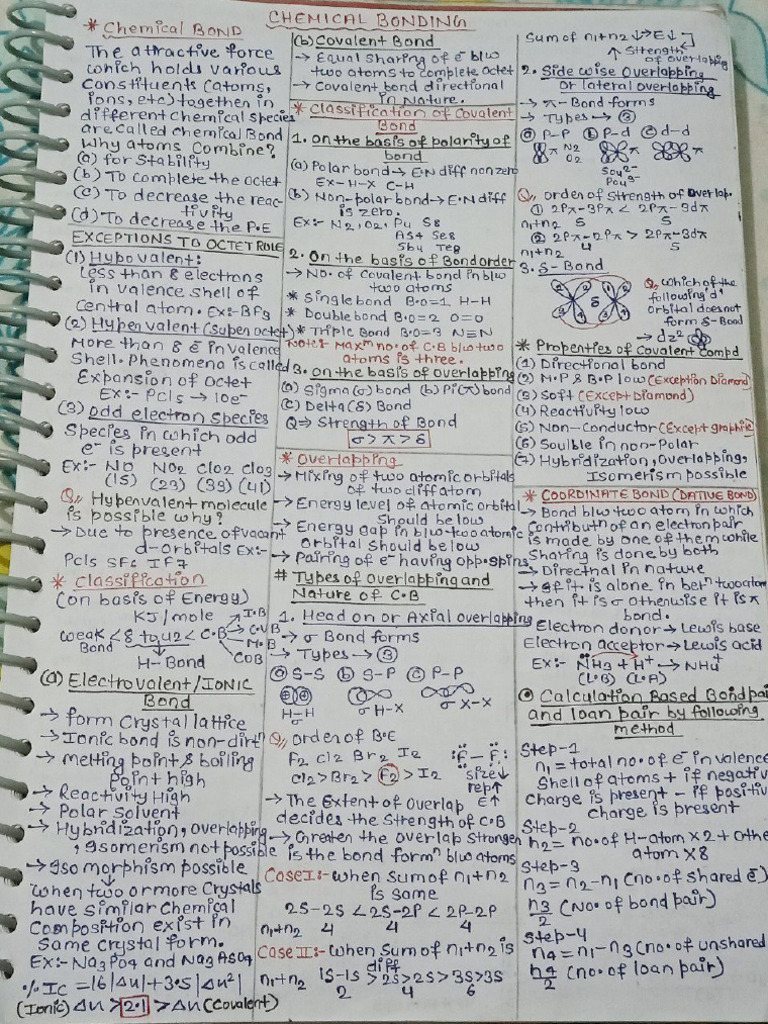 CHEMICAL BONDING
* Chemical BOND
The attractive force
which holds various
Constituents (atoms,
ions, etc) together in
different chemical species
are called chemical Bond
Why atoms Combine?
(a) for Stability
(b) To complete the octet
(c) To decrease the reac-
tivity
(d) To decrease the P.E
EXCEPTIONS TO OCTET ROLE
(1) Hypovalent:
Less than 8 electrons
in valence shell of
central atom. Ex:- BF3
(2) Hypervalent (super octet)
More than 8 e⁻ in valence
Shell. Phenomena is called
Expansion of octet
Ex:- PCl5 → 10e⁻
(3) odd electron species
Species in which odd
e⁻ is present
Ex:- NO NO2 ClO2 ClO3
(15) (23) (33) (41)
Q,, Hypervalent molecule
is possible why?
→ Due to presence of vacant
d-orbitals Ex:-
PCl5 SF6 IF7
* Classification
(on basis of Energy)
KJ/mole
weak < 8 to 42 < C.B → I.B
Bond
C.V.B
M.B
COB
H-Bond
(a) Electrovalent/IONIC
Bond
→ form Crystal lattice
→ Ionic bond is non-dirⁿ
→ melting point & boiling
point high
→ Reactivity High
→ Polar Solvent
→ Hybridization, overlapping
, Isomerism not possible
→ Iso morphism possible
When two or more Crystals
have Similar Chemical
Composition exist in
Same crystal form.
Ex:- Na3PO4 and Na3ASO4
% IC = 16|Δu| + 3.5|Δu²|
(Ionic) Δu > 2.1 > Δu (Covalent)
(b) Covalent Bond
→ Equal Sharing of e⁻ b/w
two atoms to complete Octet
→ Covalent bond directional
in Nature.
* Classification of Covalent
Bond
1. on the basis of polarity of
bond
(a) Polar bond → E.N diff non zero
Ex - H-X C-H
(b) Non-polar bond → E.N diff
is zero.
Ex:- N2, O2, P4 S8
AS4 Se8
Sb4 Te8
2. On the basis of Bond order
→ No. of Covalent bond in b/w
two atoms
* Single bond B.O=1 H-H
* Double bond B.O=2 O=O
* Triple Bond B.O=3 N≡N
Note:- Maxᵐ no. of C.B b/w two
atoms is three.
3. on the basis of overlapping
(a) Sigma (σ) bond (b) Pi (π) bond
(c) Delta (δ) Bond
Q ⇒ Strength of Bond
σ > π > δ
* Overlapping
→ Mixing of two atomic orbitals
of two diff atom
→ Energy level of atomic orbital
Should be low
→ Energy gap in b/w two atomic
orbital should below
→ Pairing of e⁻ having opp. spins
# Types of Overlapping and
Nature of C.B
1. Head on or Axial overlapping
→ σ Bond forms
→ Types → ③
ⓐ S-S ⓑ S-P ⓒ P-P
H-H σ H-X σ X-X
Q,, order of B.E
F2 Cl2 Br2 I2
Cl2 > Br2 > F2 > I2
F - F
size↓
rep↑
E↑
→ The Extent of Overlap
decides the Strength of C.B
→ Greater the overlap Stronger
is the bond formⁿ b/w atoms
Case I:- when Sum of n1+n2
is same
2S-2S < 2S-2P < 2P-2P
n1+n2 4 4 4
Case II:- when Sum of n1+n2 is
diff
1S-1S > 2S > 2S > 3S > 3S
n1+n2 2 4 6
Sum of n1+n2 ↓ → E↓
↑ Strength
of overlapping
2. Side wise Overlapping
or lateral overlapping
→ π-Bond forms
→ Types → ③
ⓐ P-P ⓑ P-d ⓒ d-d
π N2 O2 π π
SO4²⁻
PO4³⁻
Q,, order of Strength of overlap.
① 2Pπ-3Pπ < 2Pπ-3dπ
n1+n2 5 5
② 2Pπ-2Pπ > 2Pπ-3dπ
n1+n2 4 5
3. δ-Bond
δ
Q,, which of the
following 'd'
orbital does not
form δ-Bond
→ dz²
* Properties of Covalent Compd
(1) Directional bond
(2) M.P & B.P low (Exception Diamond)
(3) Soft (Except Diamond)
(4) Reactivity low
(5) Non-Conductor (Except graphite)
(6) Soulble in non-Polar
(7) Hybridization, Overlapping,
Isomerism possible
* COORDINATE BOND (DATIVE BOND)
→ Bond b/w two atom in which
Contributⁿ of an electron pair
is made by one of them while
Sharing is done by both
→ Directnal in nature
→ If it is alone in betⁿ two atom
then it is σ otherwise it is π
bond.
Electron donor → Lewis base
Electron acceptor → Lewis acid
Ex:- NH3 + H⁺ → NH4⁺
(L.B) (L.A)
Calculation Based Bond pair
and loan pair by following
method
Step-1
n1 = total no. of e⁻ in valence
Shell of atoms + if negativ
charge is present - if positiv
charge is present
Step-2
n2 = no. of H-atom × 2 + othe
atom × 8
Step-3
n3 = n2 - n1 (no. of shared e⁻)
n3/2 (No. of bond pair)
Step-4
n4 = n1 - n3 (no. of unshared
n4/2 (no. of loan pair)